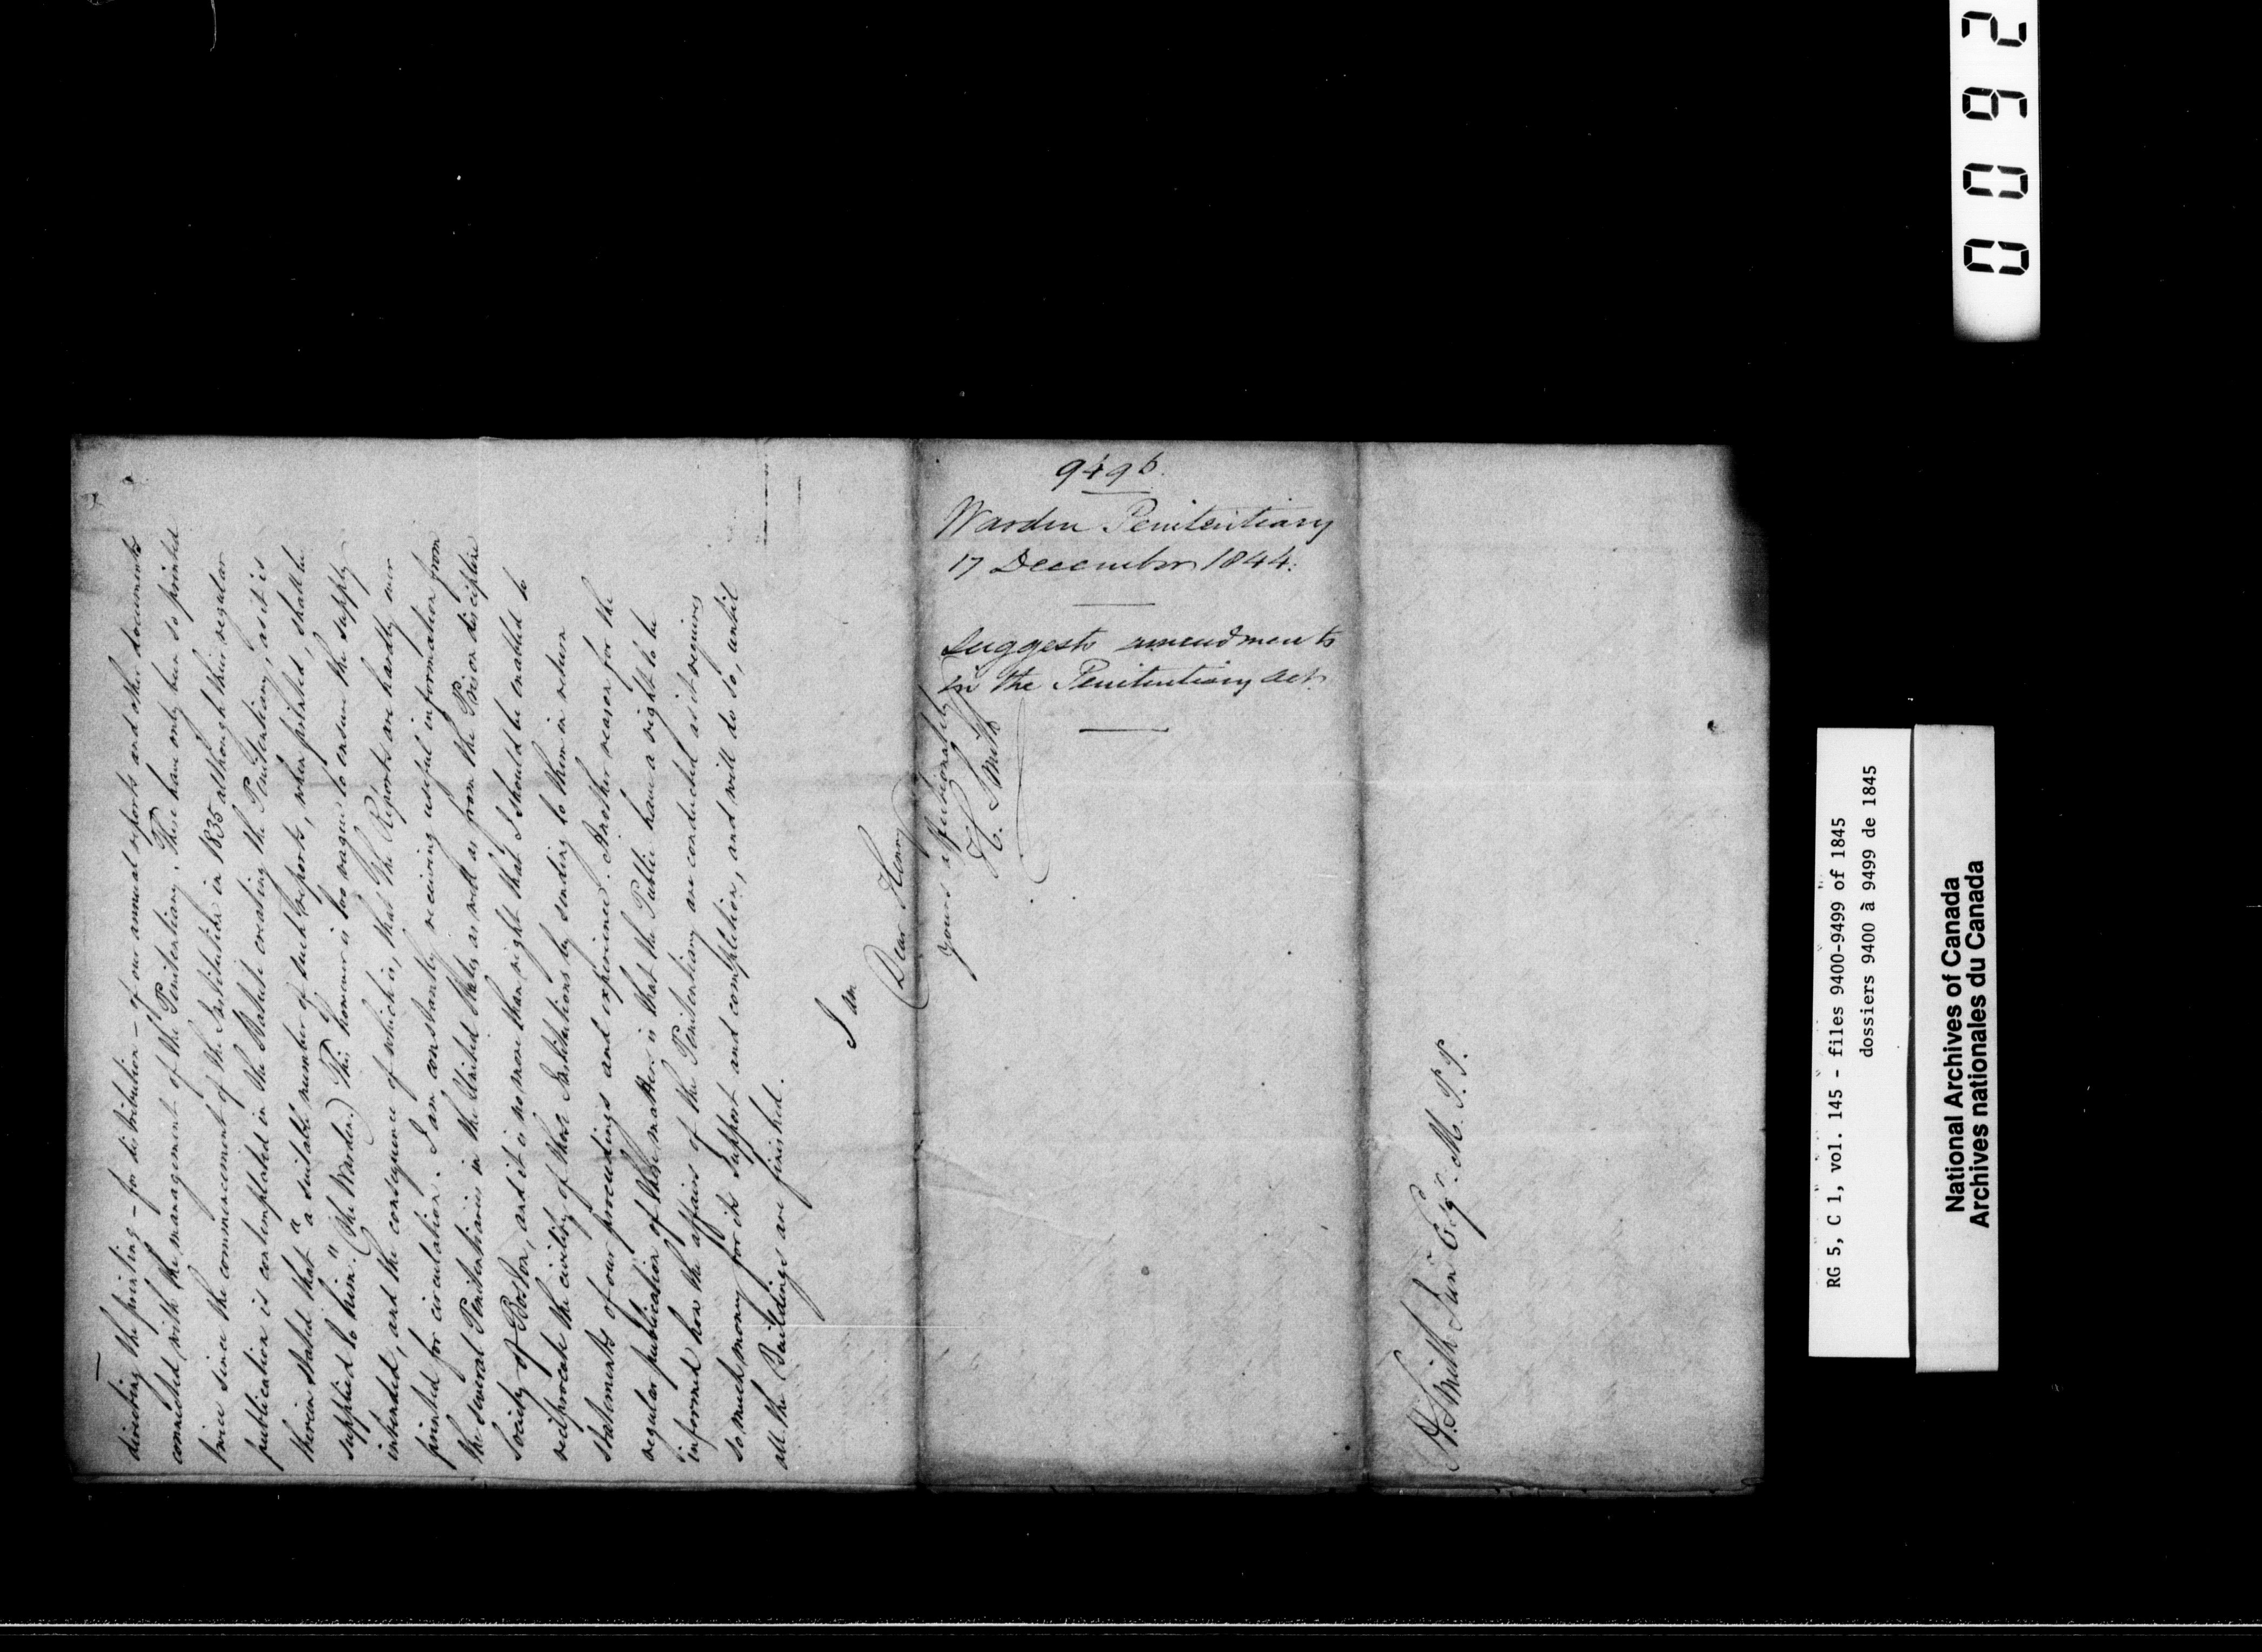 directing the printing – for distribution – of our annual reports and other documents
connected with the management of the Penitentiary. These have only been so printed
twice since the commencement of the Institution in 1835 although their regular
publication is contemplated in the Statute creating the Penitentiary, as it is
therein stated that "a suitable number of such reports, when printed, shall be
supplied to him". (the Warden.) This however is too vague to ensure the supply
intended, and the consequence of which is, that the Reports are hardly ever
printed for circulation. I am constantly receiving useful information from
the several Penitentiaries in the United States as well as from the Prison discipline
Society of Boston, and it is no more than right that I should be enabled to
reciprocate the civility of those Institutions by sending to them in return
statements of our proceedings and experience. Another reason for the
regular publication of these matters is that the Public have a right to be
informed how the affairs of the Penitentiary are conducted as it requires
so much money for its support and completion, and will do so, until
all the Buildings are finished.
I am
Dear Henry
yours affectionately
H. Smith
9496.
Warden Penitentiary
17 December 1844.
Suggests amendments
in the Penitentiary act
H. Smith Junr Esqr. M. P. P.
0092
RG 5, C 1, vol. 145 - files 9400-9499 of 1845
dossiers 9400 à 9499 de 1845
National Archives of Canada
Archives nationales du Canada